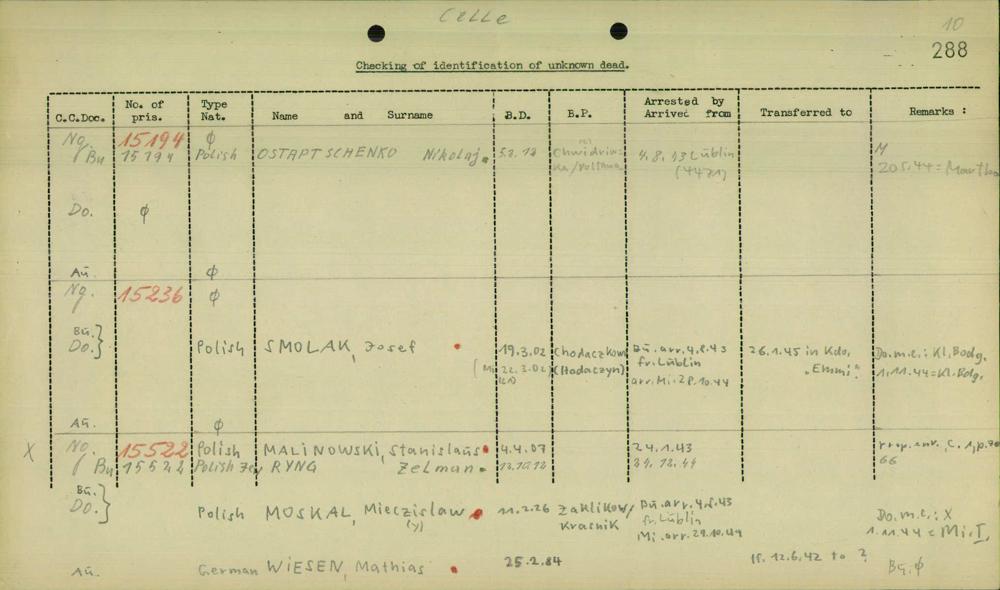 Celle
10
288
Checking of identification of unknown dead.
C.C.Doc. No. of pris. Type Nat. Name and Surname B.D. B.P. Arrested by Arrived from Transferred to Remarks :
Ng. 15194 ϕ M
Bu 15194 Polish OSTAPTSCHENKO Nikolaj. 5.2.12 4.8.43 Lüblin
(4421) 20.5.44 =
Do. ϕ
Au. ϕ
Ng. 15236 ϕ
Bu. } Do. Polish SMOLAK, Josef 19.3.02 Chodaczkow Bu. arr. 4.8.43 26.1.45 in Kdo. Do.m.c.: Kl. Bodg.
(Mi 22.3.02) (Hodaczyn) fr. Lüblin "Emmi" 1.11.44 = Kl. Bdg.
arr. Mi. 28.10.44
Au. ϕ
X Ng. 15522 Polish MALINOWSKI, Stanislaus 4.4.07 24.1.43 C. 1, p.
Bu 15522 Polish RYNG Zelman. 24.12.44 66
Bu. } Do. Polish MOSKAL, Mieczislaw 11.2.26 Zaklikow/ Bu. arr. 4.8.43 Do.m.c.: X
(y) Krasnik fr. Lüblin 1.11.44 = Mi. I.
Mi. arr. 29.10.44
Au. German WIESEN, Mathias 25.2.84 12.6.42 to ? Bu. ϕ